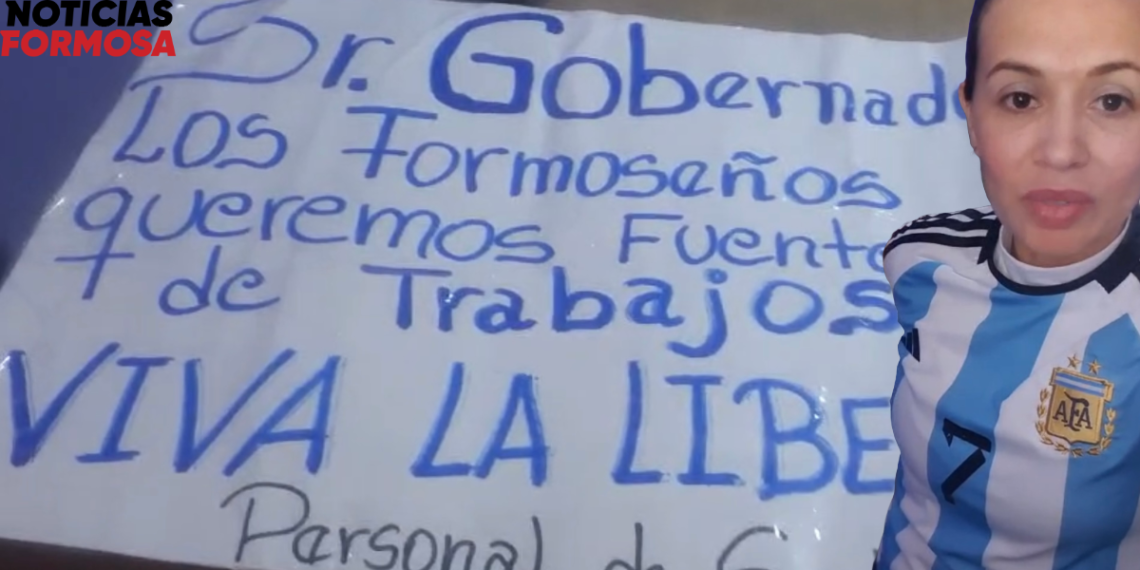 NOTICIAS
FORMOSA
Sr. Gobernad
Los Formoseños
queremos Fuente
de Trabajos
VIVA LA LIBE
Personal de
AFA
7